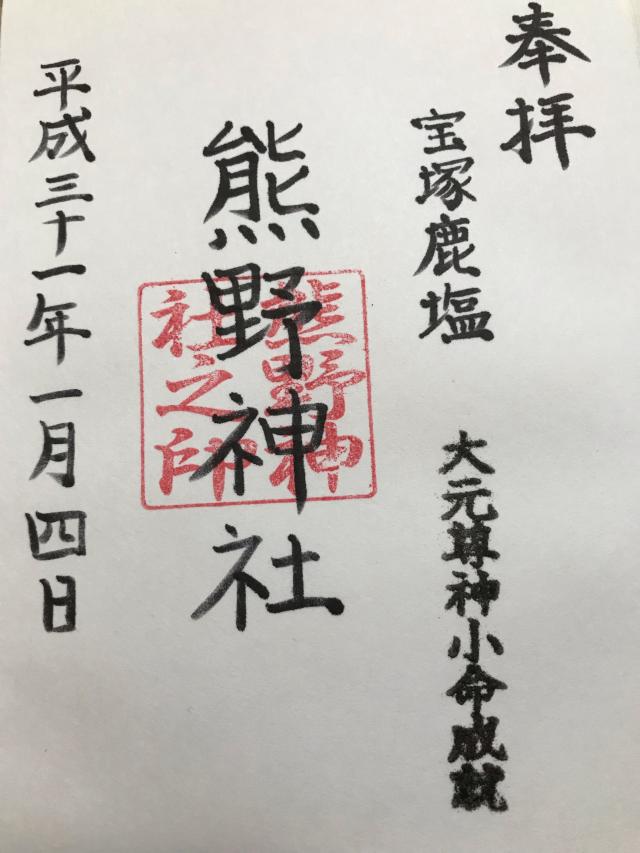 奉拝
宝塚鹿塩
大元尊神小命成就
熊野神社
熊野神
社之印
平成三十一年一月四日